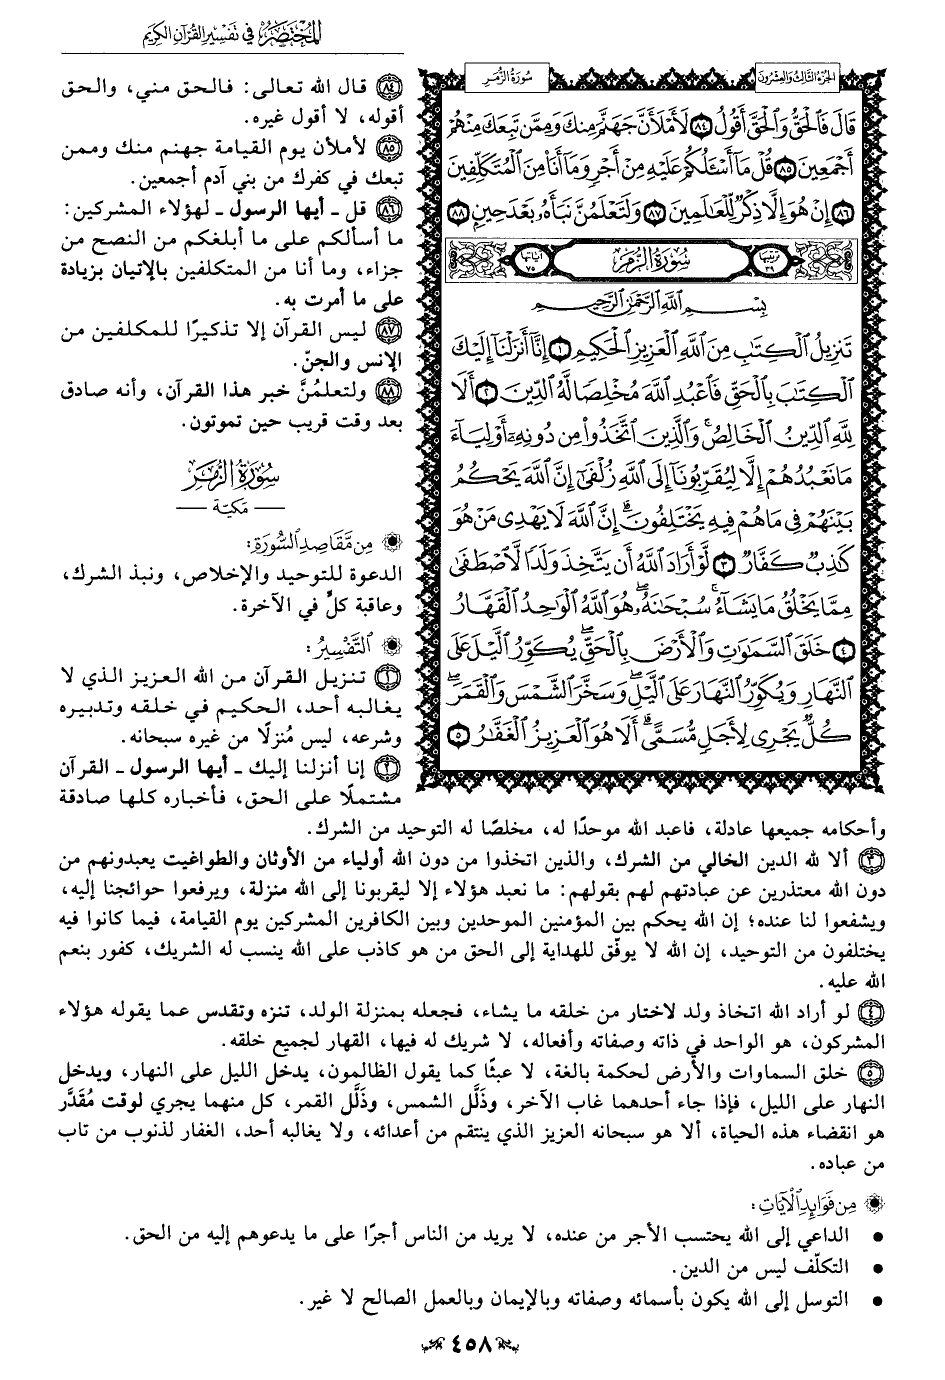 المختصر في تفسير القرآن الكريم
الجزء الثالث والعشرون
سورة الزمر
قَالَ فَالْحَقُّ وَالْحَقَّ أَقُولُ ٨٤ لَأَمْلَأَنَّ جَهَنَّمَ مِنكَ وَمِمَّن تَبِعَكَ مِنْهُمْ
أَجْمَعِينَ ٨٥ قُلْ مَا أَسْـَٔلُكُمْ عَلَيْهِ مِنْ أَجْرٍ وَمَا أَنَا۠ مِنَ الْمُتَكَلِّفِينَ
٨٦ إِنْ هُوَ إِلَّا ذِكْرٌ لِّلْعَالَمِينَ ٨٧ وَلَتَعْلَمُنَّ نَبَأَهُۥ بَعْدَ حِينٍ ٨٨
ترتيبها ٣٩
سُورَةُ الزُّمَرِ
آياتها ٧٥
بِسْمِ اللَّهِ الرَّحْمَٰنِ الرَّحِيمِ
تَنزِيلُ الْكِتَابِ مِنَ اللَّهِ الْعَزِيزِ الْحَكِيمِ ١ إِنَّا أَنزَلْنَا إِلَيْكَ
الْكِتَابَ بِالْحَقِّ فَاعْبُدِ اللَّهَ مُخْلِصًا لَّهُ الدِّينَ ٢ أَلَا
لِلَّهِ الدِّينُ الْخَالِصُ ۚ وَالَّذِينَ اتَّخَذُوا مِن دُونِهِۦ أَوْلِيَاءَ
مَا نَعْبُدُهُمْ إِلَّا لِيُقَرِّبُونَا إِلَى اللَّهِ زُلْفَىٰ إِنَّ اللَّهَ يَحْكُمُ
بَيْنَهُمْ فِي مَا هُمْ فِيهِ يَخْتَلِفُونَ ۗ إِنَّ اللَّهَ لَا يَهْدِي مَنْ هُوَ
كَاذِبٌ كَفَّارٌ ٣ لَّوْ أَرَادَ اللَّهُ أَن يَتَّخِذَ وَلَدًا لَّاصْطَفَىٰ
مِمَّا يَخْلُقُ مَا يَشَاءُ ۚ سُبْحَانَهُ ۖ هُوَ اللَّهُ الْوَاحِدُ الْقَهَّارُ
٤ خَلَقَ السَّمَاوَاتِ وَالْأَرْضَ بِالْحَقِّ ۖ يُكَوِّرُ اللَّيْلَ عَلَى
النَّهَارِ وَيُكَوِّرُ النَّهَارَ عَلَى اللَّيْلِ ۖ وَسَخَّرَ الشَّمْسَ وَالْقَمَرَ ۖ
كُلٌّ يَجْرِي لِأَجَلٍ مُّسَمًّى ۗ أَلَا هُوَ الْعَزِيزُ الْغَفَّارُ ٥
٨٤ قال الله تعالى: فالحق مني، والحق
أقوله، لا أقول غيره.
٨٥ لأملأن يوم القيامة جهنم منك وممن
تبعك في كفرك من بني آدم أجمعين.
٨٦ قل ـ أيها الرسول ـ لهؤلاء المشركين:
ما أسألكم على ما أبلغكم من النصح من
جزاء، وما أنا من المتكلفين بالإتيان بزيادة
على ما أمرت به.
٨٧ ليس القرآن إلا تذكيرًا للمكلفين من
الإنس والجنّ.
٨٨ ولتعلمُنَّ خبر هذا القرآن، وأنه صادق
بعد وقت قريب حين تموتون.
سورة الزمر
— مكية —
من مقاصد السورة:
الدعوة للتوحيد والإخلاص، ونبذ الشرك،
وعاقبة كلٍّ في الآخرة.
التفسير:
١ تنزيل القرآن من الله العزيز الذي لا
يغالبه أحد، الحكيم في خلقه وتدبيره
وشرعه، ليس مُنزلًا من غيره سبحانه.
٢ إنا أنزلنا إليك ـ أيها الرسول ـ القرآن
مشتملًا على الحق، فأخباره كلها صادقة
وأحكامه جميعها عادلة، فاعبد الله موحدًا له، مخلصًا له التوحيد من الشرك.
٣ ألا لله الدين الخالي من الشرك، والذين اتخذوا من دون الله أولياء من الأوثان والطواغيت يعبدونهم من
دون الله معتذرين عن عبادتهم لهم بقولهم: ما نعبد هؤلاء إلا ليقربونا إلى الله منزلة، ويرفعوا حوائجنا إليه،
ويشفعوا لنا عنده؛ إن الله يحكم بين المؤمنين الموحدين وبين الكافرين المشركين يوم القيامة، فيما كانوا فيه
يختلفون من التوحيد، إن الله لا يوفّق للهداية إلى الحق من هو كاذب على الله ينسب له الشريك، كفور بنعم
الله عليه.
٤ لو أراد الله اتخاذ ولد لاختار من خلقه ما يشاء، فجعله بمنزلة الولد، تنزه وتقدس عما يقوله هؤلاء
المشركون، هو الواحد في ذاته وصفاته وأفعاله، لا شريك له فيها، القهار لجميع خلقه.
٥ خلق السماوات والأرض لحكمة بالغة، لا عبثًا كما يقول الظالمون، يدخل الليل على النهار، ويدخل
النهار على الليل، فإذا جاء أحدهما غاب الآخر، وذلَّل الشمس، وذَلَّل القمر، كل منهما يجري لوقت مُقَدَّر
هو انقضاء هذه الحياة، ألا هو سبحانه العزيز الذي ينتقم من أعدائه، ولا يغالبه أحد، الغفار لذنوب من تاب
من عباده.
من فوائد الآيات:
• الداعي إلى الله يحتسب الأجر من عنده، لا يريد من الناس أجرًا على ما يدعوهم إليه من الحق.
• التكلّف ليس من الدين.
• التوسل إلى الله يكون بأسمائه وصفاته وبالإيمان وبالعمل الصالح لا غير.
٤٥٨